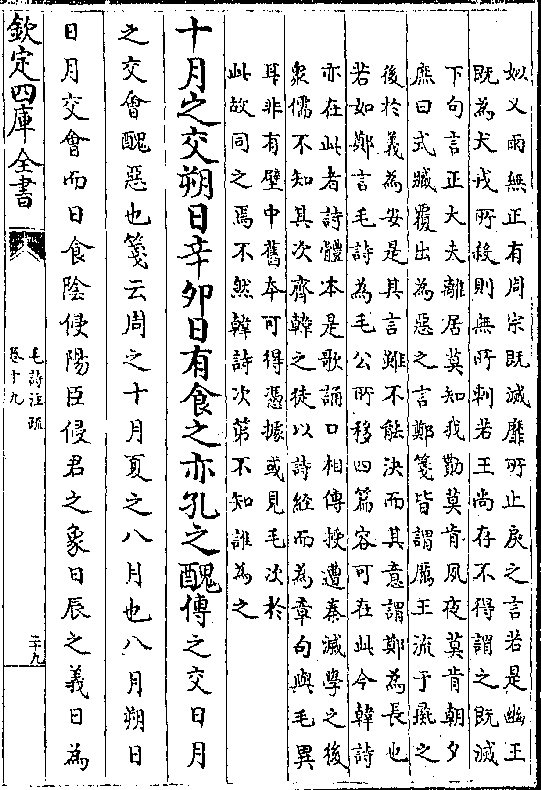 姒又雨無正有周宗既滅靡所止戾之言若是幽王
既為犬戎所殺則無所刺若王尚存不得謂之既滅
下句言正大夫離居莫知我勩莫肯夙夜莫肯朝夕
庶曰式臧覆出為惡之言鄭箋皆謂厲王流于彘之
後於義為安是其言雖不能決而其意謂鄭為長也
若如鄭言毛詩為毛公所移四篇容可在此今韓詩
亦在此者詩體本是歌誦口相傳授遭秦滅學之後
衆儒不知其次齊韓之徒以詩經而為章句與毛異
耳非有壁中舊本可得憑據或見毛次於
此故同之焉不然韓詩次第不知誰為之
十月之交朔日辛卯日有食之亦孔之醜傳之交日月
之交會醜惡也箋云周之十月夏之八月也八月朔日
日月交會而日食陰侵陽臣侵君之象日辰之義日為
欽定四庫全書
毛詩注疏
卷十九
二十九